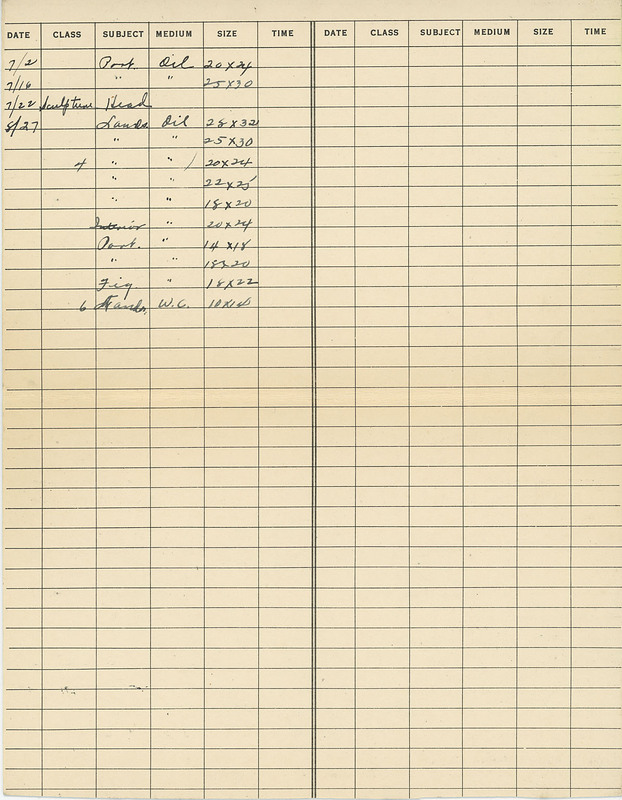 DATE CLASS SUBJECT MEDIUM SIZE TIME DATE CLASS SUBJECT MEDIUM SIZE TIME
7/2 Port. Oil 20 x 24
7/16 " " 25 x 30
7/22 Sculpture Head
8/27 Lands. Oil 28 x 32
" " 25 x 30
4 " " / 20 x 24
" " 22 x 25
" " 18 x 20
Interior " 20 x 24
Port. " 14 x 18
" " 18 x 20
Fig. " 18 x 22
6 Lands. W.C.